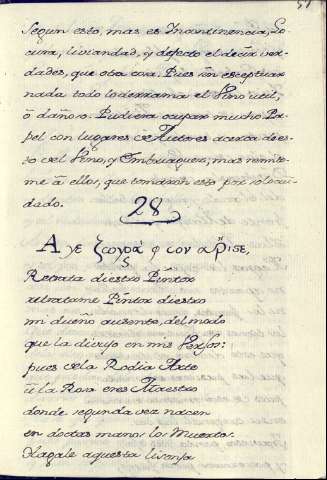 Segun esto, mas es Incontinencia, Lo
cura, liviandad, y defecto el decir ver
dades, que otra cosa. Pues sin esceptuar
nada todo lo derrama el Vino util,
ò dañoso. Pudiera ocupar mucho Pa-
pel con lugares de Autores acerca de es-
to del Vino, y Embriaguez, mas remito
me à ellos, que tomaron esto por so lo cui-
dado.
28
Retrata diestro Pintor
retratame Pintor diestro
mi dueño ausente, del modo
que la dibujo en mis Versos:
pues de la Rodia Arte
ù la Rosa eres Maestro
donde segunda vez nacen
en doctas manos los Muertos.
Hagale aquesta lisonja